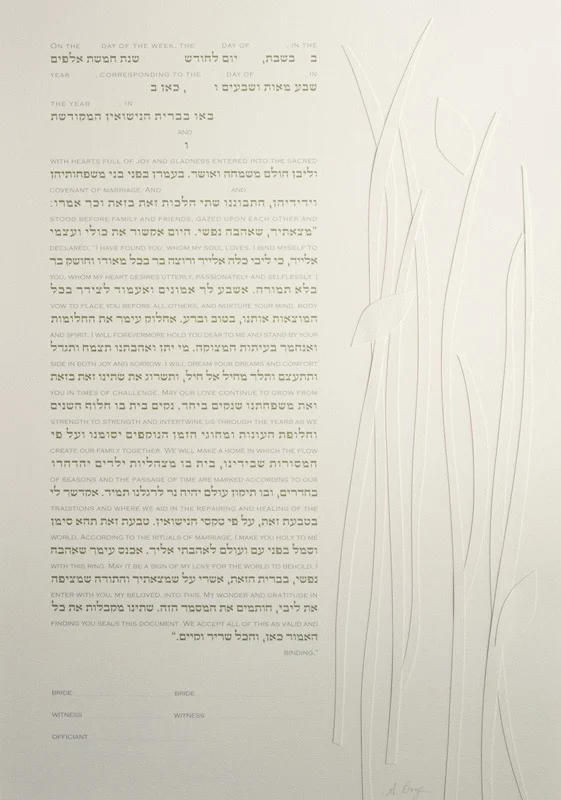 ON THE DAY OF THE WEEK, THE DAY OF , IN THE
ב בשבת, יום לחודש שנת חמשת אלפים
YEAR , CORRESPONDING TO THE DAY OF IN
שבע מאות ושבעים ו , כאן ב
THE YEAR , IN
באו בברית הנישואין המקודשת
AND
ו
WITH HEARTS FULL OF JOY AND GLADNESS ENTERED INTO THE SACRED
וליבן הולם משמחה ואושר. בעמדן בפני בני משפחותיהן
COVENANT OF MARRIAGE. AND AND
וידידיהן, התבוננו שתי הכלות זאת בזאת וכך אמרו:
STOOD BEFORE FAMILY AND FRIENDS, GAZED UPON EACH OTHER AND
"מצאתיך, שאהבה נפשי. היום אקשור את כולי ועצמי
DECLARED, "I HAVE FOUND YOU, WHOM MY SOUL LOVES. I BIND MYSELF TO
אלייך, כי ליבי כלה אלייך ורוצה בך בכל מאודו וחושק בך
YOU, WHOM MY HEART DESIRES UTTERLY, PASSIONATELY AND SELFLESSLY. I
בלא תמורה. אשבע לך אמונים ואעמוד לצידך בכל
VOW TO PLACE YOU BEFORE ALL OTHERS, AND NURTURE YOUR MIND, BODY
המוצאות אותנו, בטוב וברע. אחלוק עימך את החלומות
AND SPIRIT. I WILL FOREVERMORE HOLD YOU DEAR TO ME AND STAND BY YOUR
ואנחמך בעיתות המצוקה. מי יתן ואהבתנו תצמח ותגדל
SIDE IN BOTH JOY AND SORROW. I WILL DREAM YOUR DREAMS AND COMFORT
ותתעצם ותלך מחיל אל חיל, ותשרוג את שתינו זאת בזאת
YOU IN TIMES OF CHALLENGE. MAY OUR LOVE CONTINUE TO GROW FROM
ואת משפחתנו שנקים ביחד. נקים בית בו חלוף השנים
STRENGTH TO STRENGTH AND INTERTWINE US THROUGH THE YEARS AS WE
וחלופת העונות ומחוגי הזמן הנוקפים יסומנו ועל פי
CREATE OUR FAMILY TOGETHER. WE WILL MAKE A HOME IN WHICH THE FLOW
המסורות שבידינו, בית בו מצהליות ילדים יהדהדו
OF SEASONS AND THE PASSAGE OF TIME ARE MARKED ACCORDING TO OUR
בחדרים, ובו תיקון עולם יהיה נר לרגלנו תמיד. אקדשך לי
TRADITIONS AND WHERE WE AID IN THE REPAIRING AND HEALING OF THE
בטבעת זאת, על פי טקסי הנישואין. טבעת זאת תהא סימן
WORLD. ACCORDING TO THE RITUALS OF MARRIAGE, I MAKE YOU HOLY TO ME
וסמל בפני עם ועולם לאהבתי אליך. אכנס עימך שאהבה
WITH THIS RING. MAY IT BE A SIGN OF MY LOVE FOR THE WORLD TO BEHOLD. I
נפשי, בברית הזאת, אשרי על שמצאתיך והתודה שמציפה
ENTER WITH YOU, MY BELOVED, INTO THIS. MY WONDER AND GRATITUDE IN
את ליבי, חותמים את המסמך הזה. שתינו מקבלות את כל
FINDING YOU SEALS THIS DOCUMENT. WE ACCEPT ALL OF THIS AS VALID AND
האמור כאן, והכל שריר וקיים."
BINDING."
BRIDE BRIDE
WITNESS WITNESS
OFFICIANT